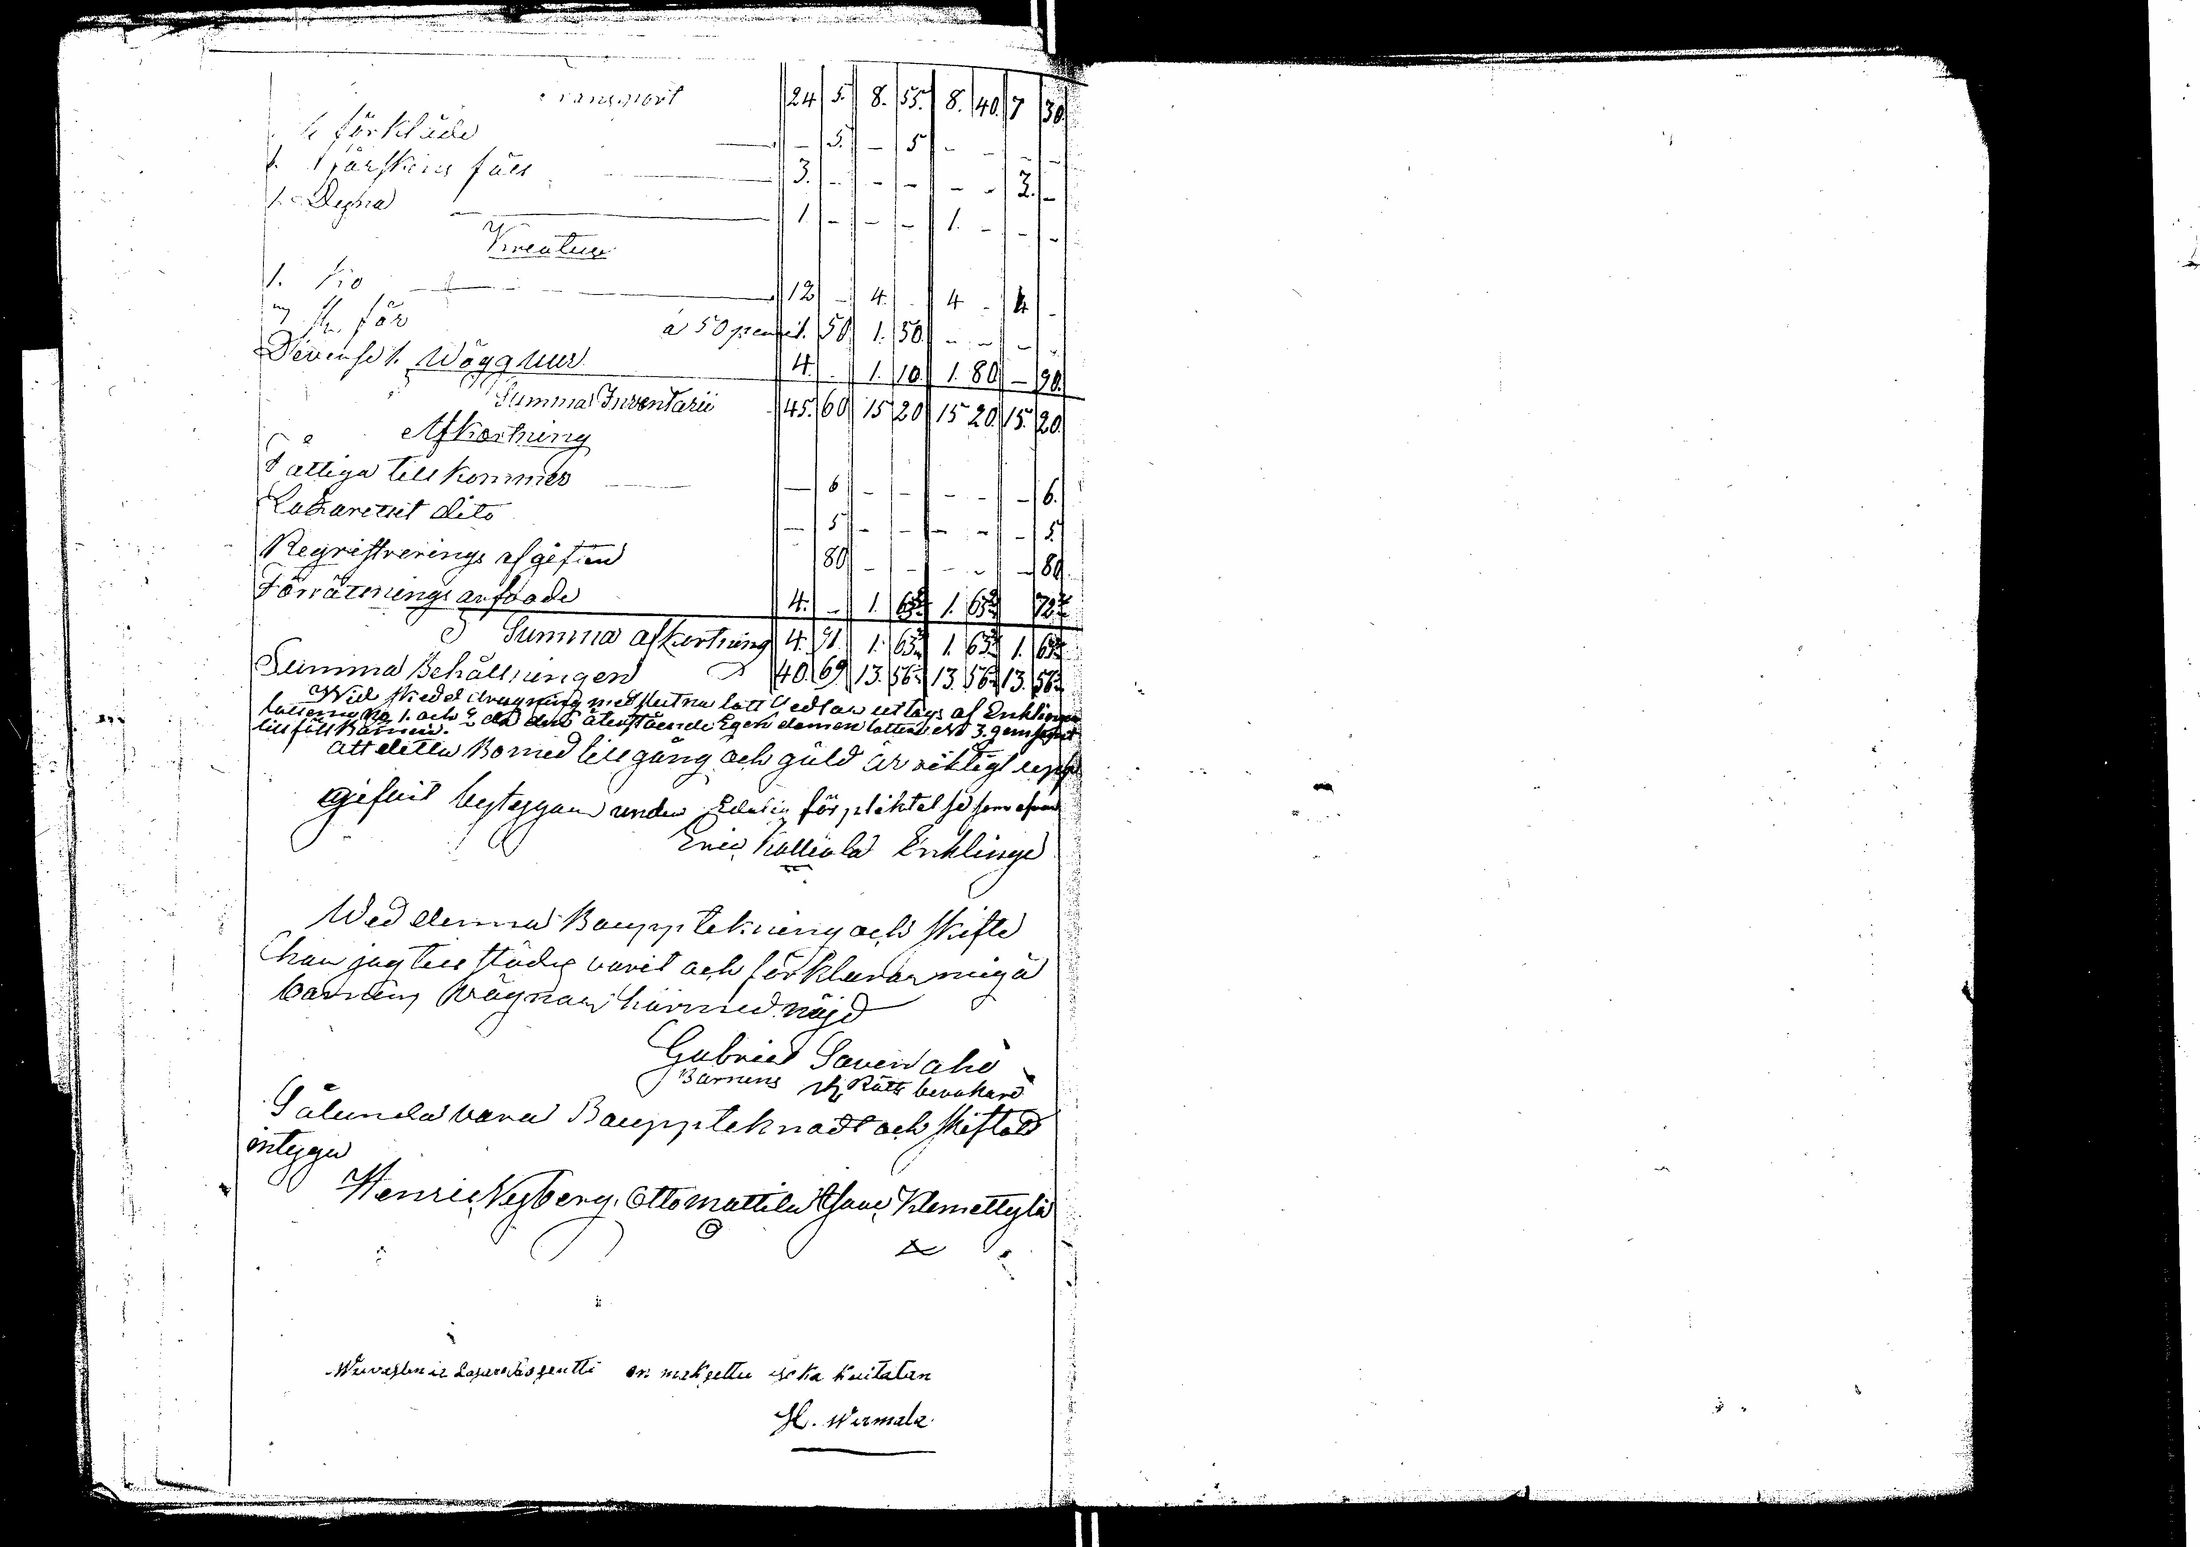 Transport 24 5. 8. 55. 8. 40. 7 30.
förkläde — 5. — 5 — — — —
1. fårskins fäll 3. — — — — — 3. —
1. Dyna 1 — — — 1. — — —
Kreatur
1. Ko 12 — 4. — 4 — 4 —
får à 50 penni 1. 50 1. 50. — — — —
1. Wägguur 4. — 1. 10. 1. 80 — 90.
Summa Inventarii 45. 60 15 20 15 20 15. 20.
Afkortning
Fattiga till kommer — 6 — — — — — 6.
Lazarettet dito — 5 — — — — — 5.
Regristrerings afgiften 80 — — — — — 80.
Förrättnings arfoode 4. — 1. 63 2/3 1. 63 2/3 72 2/3
Summa afkortning 4. 91. 1. 63 2/3 1. 63 2/3 1. 63 2/3
Summa Behållningen 40. 69. 13. 56 1/3 13. 56 1/3 13. 56 1/3
Wid skedd dragning med slutna lott Sedlar uttogs af Enklingen
lotterne No 1. och 2 då den återstående Egendomen lotten No 3. gemsamt
tillföll Barnen.
att detta Bo med till gång och gäld är riktigt upp
gifvit betygar under Edelig förpliktelse som ofvan
Eric Kalliola Enklinge
Wed denna Boupptekning och skifte
har jag till städes varit och förklarar mig å
barnens vägnar härmed nöjd
Gabriel Savenaho
Barnens Rätts bevakare
Sålunda vara Bouppteknadt och skiftadt
intyga
Henric Nyberg. Otto Mattila Isaac Klemettylä
on maksettu joka kuitatan
H. Wirmala